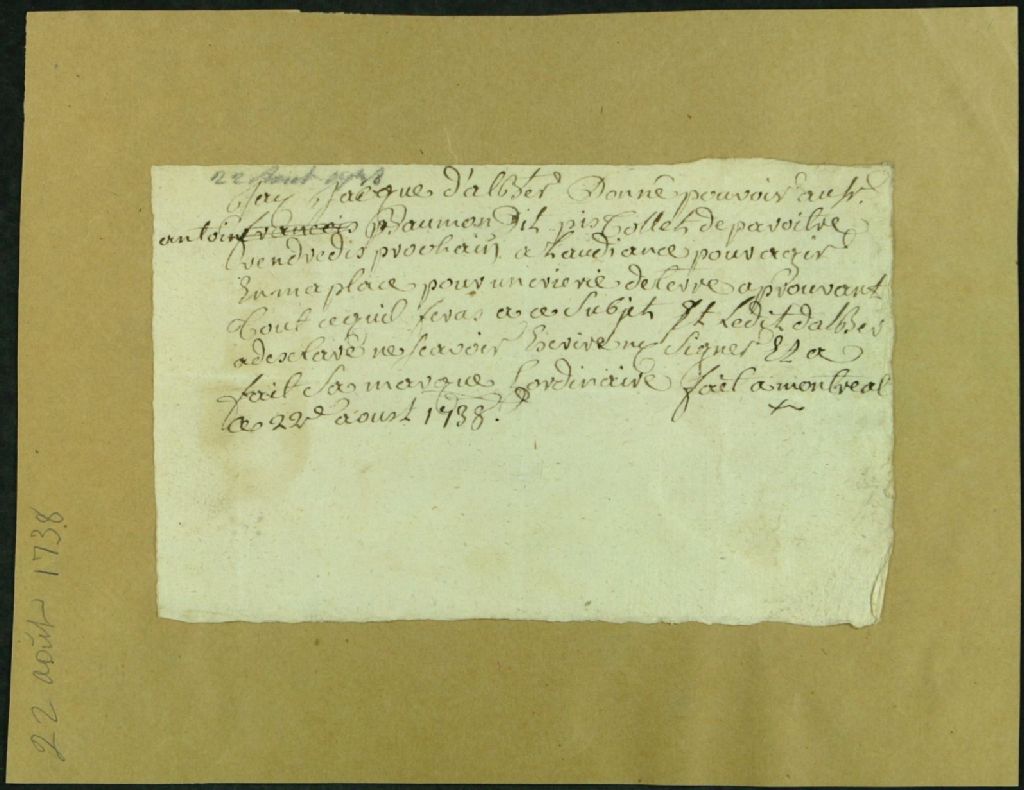 22 aout 1738
Jay Jacque d'alber Donné pouvoir au sr.
antoin francois Baumon Dit pistollet de paroitre
vendredis prochain a Laudiance pour agir
En ma place pour un crierie de terre aprouvant
Tout ce quil feras a ce Subjet Et Ledit dalber
a desclaré ne scavoir Escrire ny Signer Et a
fait Sa marque Lordinaire fait a montreal
ce 22e aoust 1738.
22 août 1738